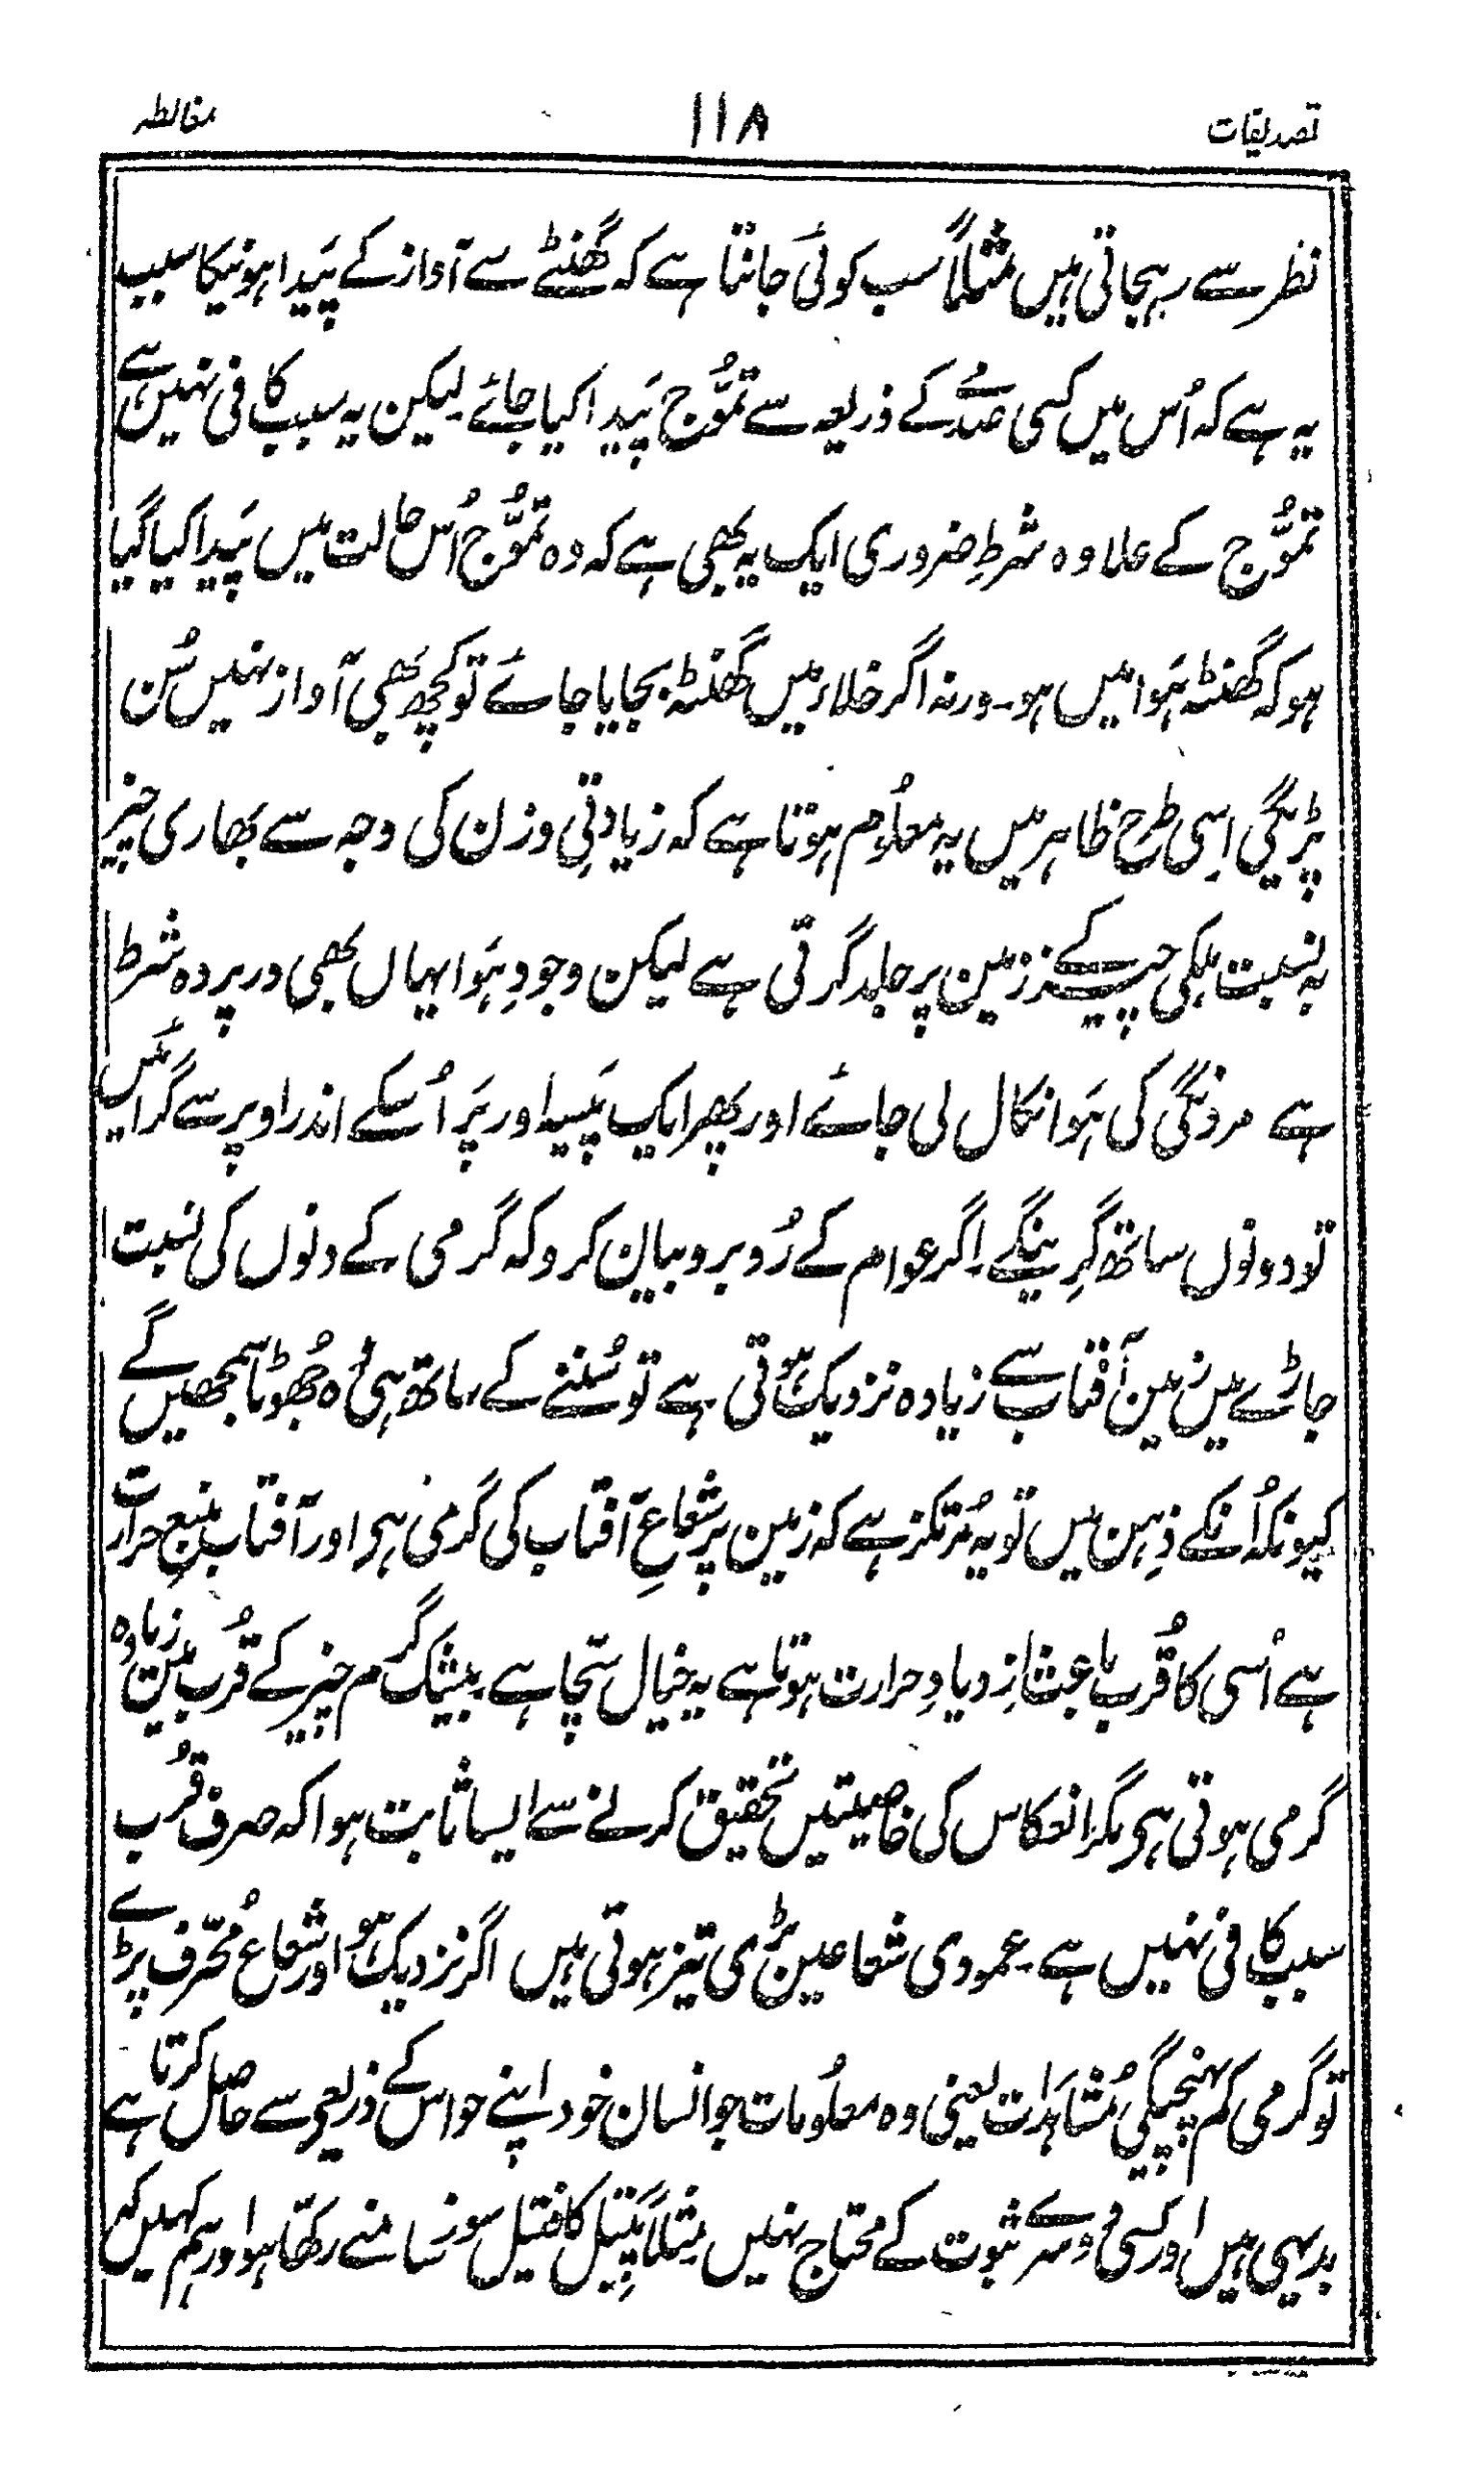 تصدیقات ۱۱۸ مغالطہ
نظر سے رہجاتی ہیں مثلاً سب کوئی جانتا ہے کہ گھنٹے سے آواز کے پَیدا ہونیکا سبب
یہ ہے کہ اُس میں کسی صدمے کے ذریعہ سے تموُّج پَیدا کیا جائے۔ لیکن یہ سبب کافی نہیں ہے
تموُّج کے علاوہ شرطِ ضروری ایک یہ بھی ہے کہ وہ تموُّج اُس حالت میں پَیدا کیا گیا
ہو کہ گھنٹہ ہَوا میں ہو۔ ورنہ اگر خلاء میں گھنٹہ بجایا جائے تو کچھ بھی آواز نہیں سُن
پڑیگی اِسی طرح ظاہر میں یہ معلُوم ہوتا ہے کہ زیادتیِ وزن کی وجہ سے بھاری چیز
بہ نسبت ہلکی چیز کے زمین پر جلد گرتی ہے لیکن وجودِ ہَوا یہاں بھی در پردہ شرط
ہے مردنگی کی ہَوا نکال لی جائے اور پھر ایک پَیسا اور پَر اُسکے اندر اوپر سے گرائیں
تو دونوں ساتھ گِرینگے۔ اگر عوام کے رُوبرو بیان کرو کہ گرمی کے دنوں کی نسبت
جاڑے میں زمین آفتاب سے زیادہ نزدیک ہوتی ہے تو سُننے کے ساتھ ہی وُہ جھُوٹا سمجھیں گے
کیونکہ اُنکے ذِہن میں تو یہ مُرتکز ہے کہ زمین پر شعاعِ آفتاب کی گرمی ہی اور آفتاب منبعِ حرارت
ہے اُسی کا قُرب باعثِ ازدیادِ حرارت ہوتا ہے یہ خیال سچّا ہے۔ بیشک گرم چیز کے قُرب میں زیادہ
گرمی ہوتی ہی مگر انعکاس کی خاصیتیں تحقیق کرنے سے ایسا ثابت ہوا کہ صرف قُرب
سبب کافی نہیں ہے۔ عمودی شعاعین بڑی تیز ہوتی ہیں اگر نزدیک ہو اور شعاع مُحرّف پڑے
تو گرمی کم پہنچیگی مُشاہَدات یعنی وہ معلُومات جو انسان خود اپنے حواس کے ذریعے سے حاصل کرتا ہے
بدیہی ہیں اور کسی دوسرے ثبوت کے محتاج نہیں مثلاً پَیتل کا فتیل سوز سامنے رکھّا ہو اور ہم کہیں کہ